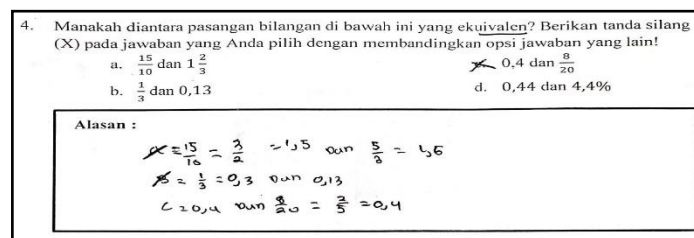 4. Manakah diantara pasangan bilangan di bawah ini yang ekuivalen? Berikan tanda silang
(X) pada jawaban yang Anda pilih dengan membandingkan opsi jawaban yang lain!
a. 15/10 dan 1 2/3
b. 1/3 dan 0,13
c. 0,4 dan 8/20
d. 0,44 dan 4,4%
Alasan :
A = 15/10 = 3/2 = 1,5 dan 5/3 = 1,6
B = 1/3 = 0,3 dan 0,13
C = 0,4 dan 8/20 = 2/5 = 0,4